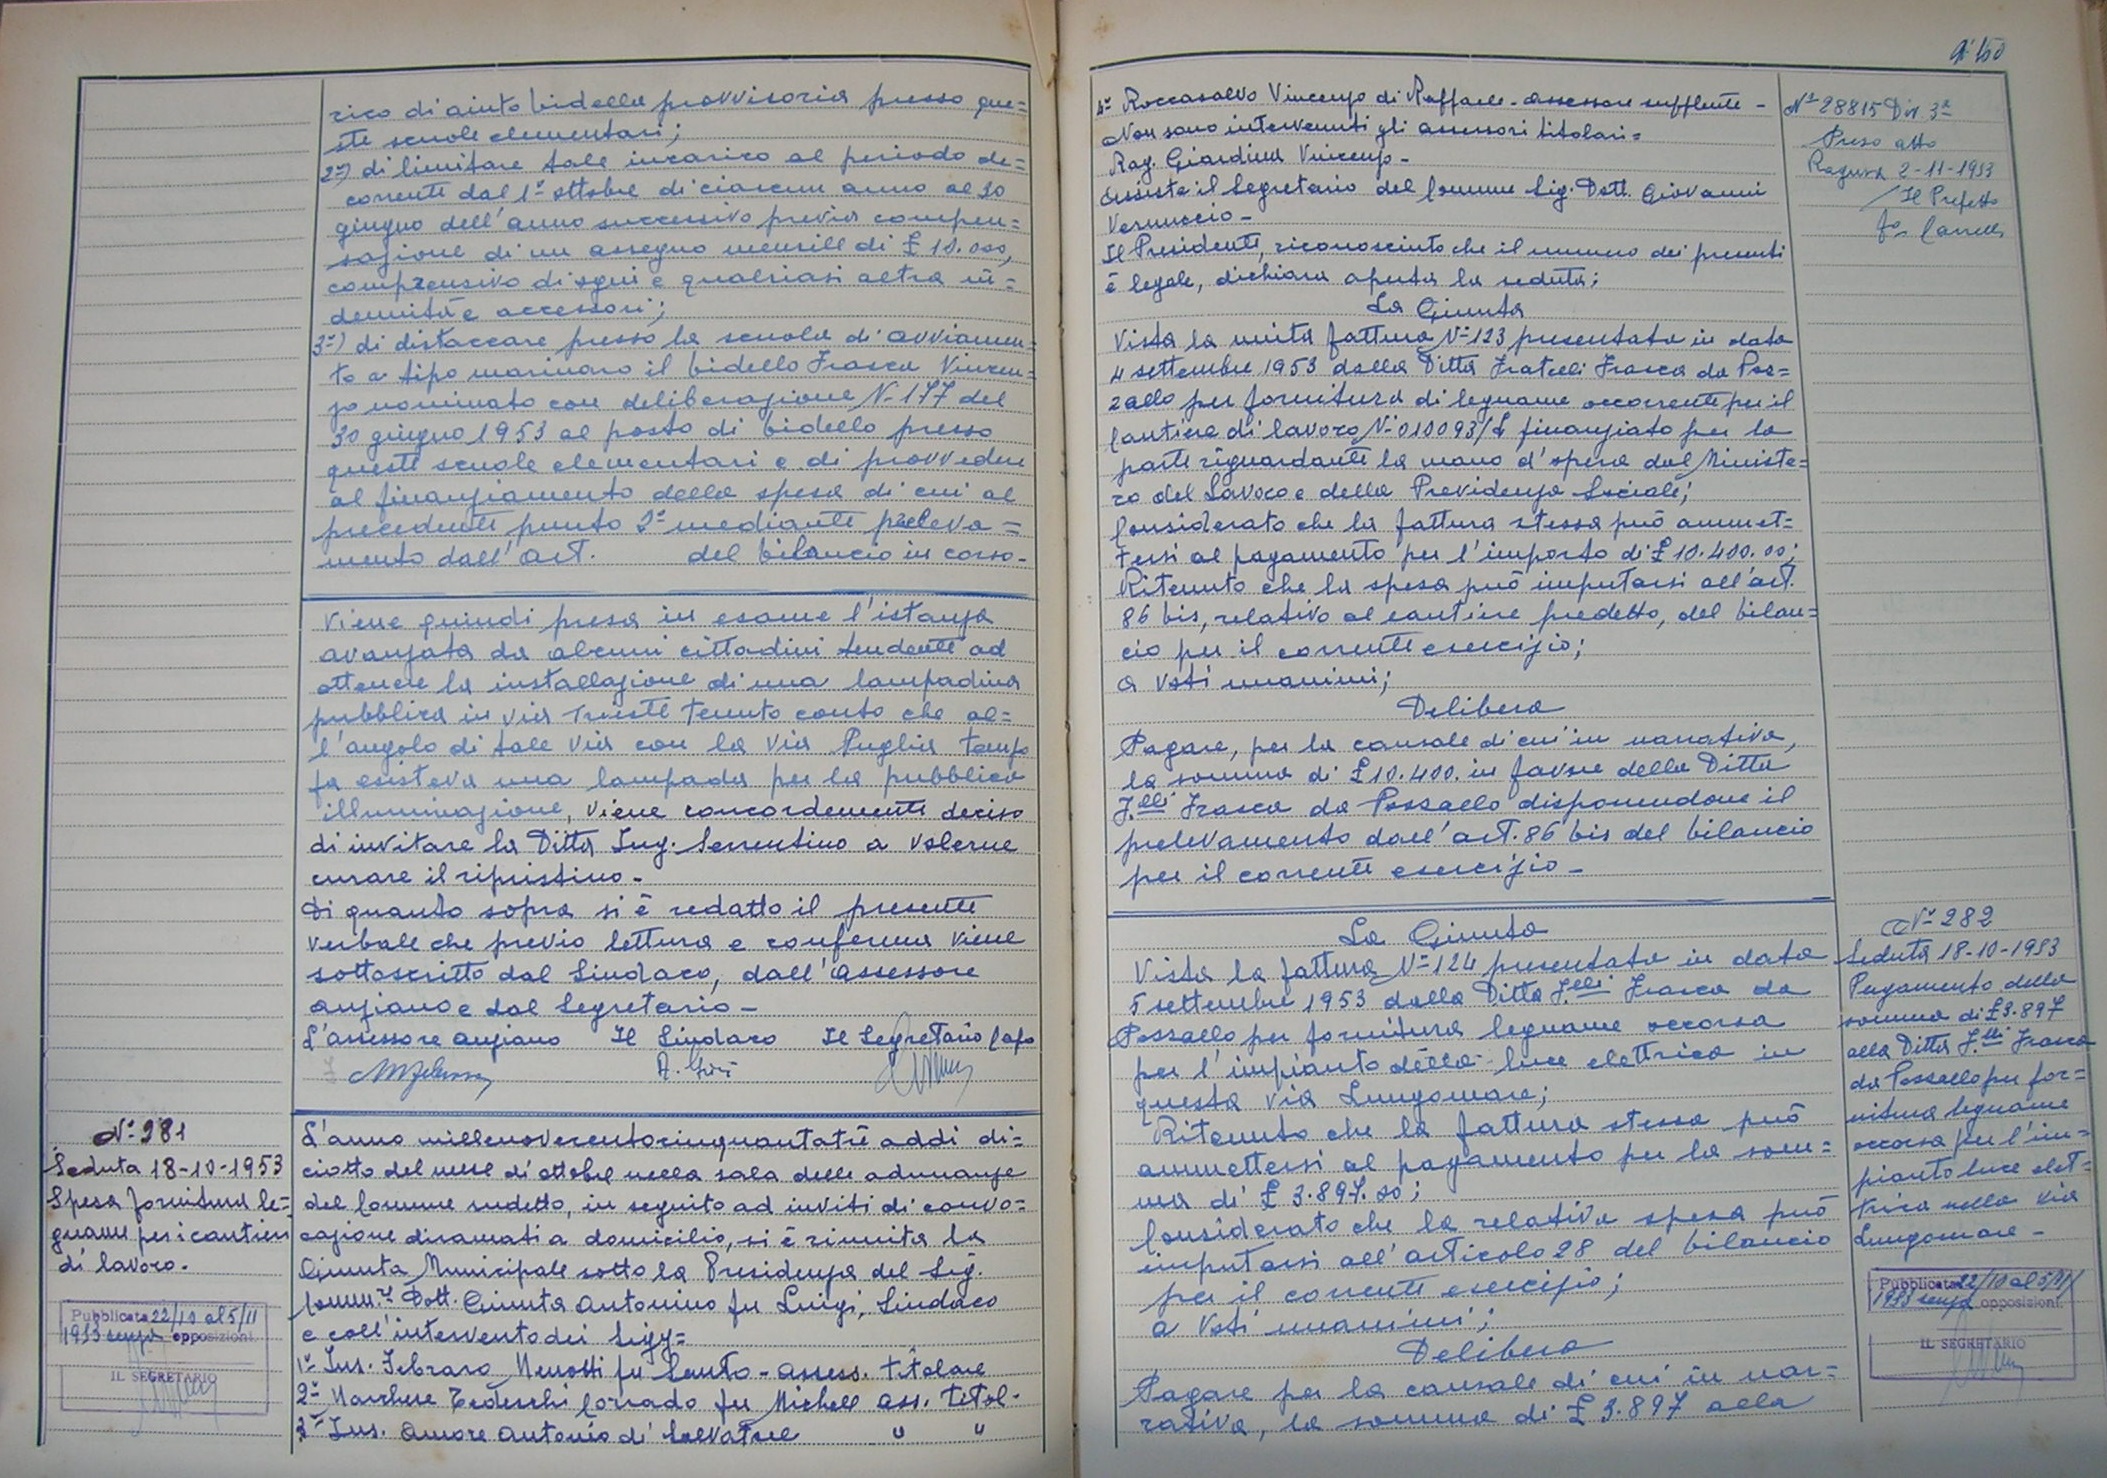 rico di aiuto bidella provvisoria presso que=
ste scuole elementari;
2°) di limitare tale incarico al periodo de=
corrente dal 1° ottobre di ciascun anno al 30
giugno dell'anno successivo previa compen=
sazione di un assegno mensile di £ 10.000,
comprensivo di ogni e qualsiasi altra in=
dennità e accessori;
3°) di distaccare presso la scuola di avviamen=
to a tipo marinaro il bidello Frasca Vincen=
zo nominato con deliberazione N. 177 del
30 giugno 1953 al posto di bidello presso
queste scuole elementari e di provvedere
al finanziamento della spesa di cui al
precedente punto 2° mediante preleva=
mento dall'art. del bilancio in corso-
Viene quindi presa in esame l'istanza
avanzata da alcuni cittadini tendente ad
ottenere la installazione di una lampadina
pubblica in via Trieste tenuto conto che al=
l'angolo di tale Via con la Via Puglia tempo
fa esisteva una lampada per la pubblica
illuminazione, viene concordemente deciso
di invitare la Ditta Ing. Sorrentino a volerne
curare il ripristino-
Di quanto sopra si è redatto il presente
verbale che previo lettura e conferma viene
sottoscritto dal Sindaco, dall'Assessore
anziano e dal Segretario-
L'assessore anziano Il Sindaco Il Segretario Capo
N° 281
Seduta 18-10-1953
Spesa fornitura le=
gname per i cantieri
di lavoro.
Pubblicata 22/10 al 5/11
1953 senza opposizioni.
IL SEGRETARIO
L'anno millenovecentocinquantatrè addì di=
ciotto del mese di ottobre nella sala delle adunanze
del Comune sudetto, in seguito ad inviti di convo=
cazione diramati a domicilio, si è riunita la
Giunta Municipale sotto la Presidenza del Sig.
Comm.re Dott. Giunta Antonino fu Luigi, Sindaco
e coll'intervento dei Sigg=
1° Ins. Febraro Menotti fu Santo - Assess. titolare
2° Marchese Tedeschi Corrado fu Michele ass. titol-
3° Ins. Amore Antonio di Salvatore " "
4° Roccasalvo Vincenzo di Raffaele - assessore supplente -
Non sono intervenuti gli assessori titolari=
Rag. Giardina Vincenzo-
Assiste il Segretario del Comune Sig. Dott. Giovanni
Vernuccio-
Il Presidente, riconosciuto che il numero dei presenti
è legale, dichiara aperta la seduta;
La Giunta
Vista la unita fattura N° 123 presentata in data
4 settembre 1953 dalla Ditta Fratelli Frasca da Poz=
zallo per fornitura di legname occorrente per il
Cantiere di lavoro N° 010093/L finanziato per la
parte riguardante la mano d'opera dal Ministe=
ro del Lavoro e della Previdenza Sociale;
Considerato che la fattura stessa può ammet=
tersi al pagamento per l'importo di £ 10.400.00;
Ritenuto che la spesa può imputarsi all'art.
86 bis, relativo al cantiere predetto, del bilan=
cio per il corrente esercizio;
a voti unanimi;
Delibera
Pagare, per la causale di cui in narrativa,
la somma di £ 10.400. in favore della Ditta
F.lli Frasca da Pozzallo disponendone il
prelevamento dall'art. 86 bis del bilancio
per il corrente esercizio-
N° 28815 Div. 3a
Preso atto
Ragusa 2-11-1953
Il Prefetto
La Giunta
Vista la fattura N° 124 presentata in data
5 settembre 1953 dalla Ditta F.lli Frasca da
Pozzallo per fornitura legname occorsa
per l'impianto della luce elettrica in
questa via Lungomare;
Ritenuto che la fattura stessa può
ammettersi al pagamento per la som=
ma di £ 3.897.00;
Considerato che la relativa spesa può
imputarsi all'articolo 28 del bilancio
per il corrente esercizio;
a voti unanimi;
Delibera
Pagare per la causale di cui in nar=
rativa, la somma di £ 3.897 alla
N° 282
Seduta 18-10-1953
Pagamento della
somma di £ 3.897
alla Ditta F.lli Frasca
da Pozzallo per for=
nitura legname
occorsa per l'im=
pianto luce elet=
trica nella via
Lungomare-
Pubblicata 22/10 al 5/11/
1953 senza opposizioni.
IL SEGRETARIO